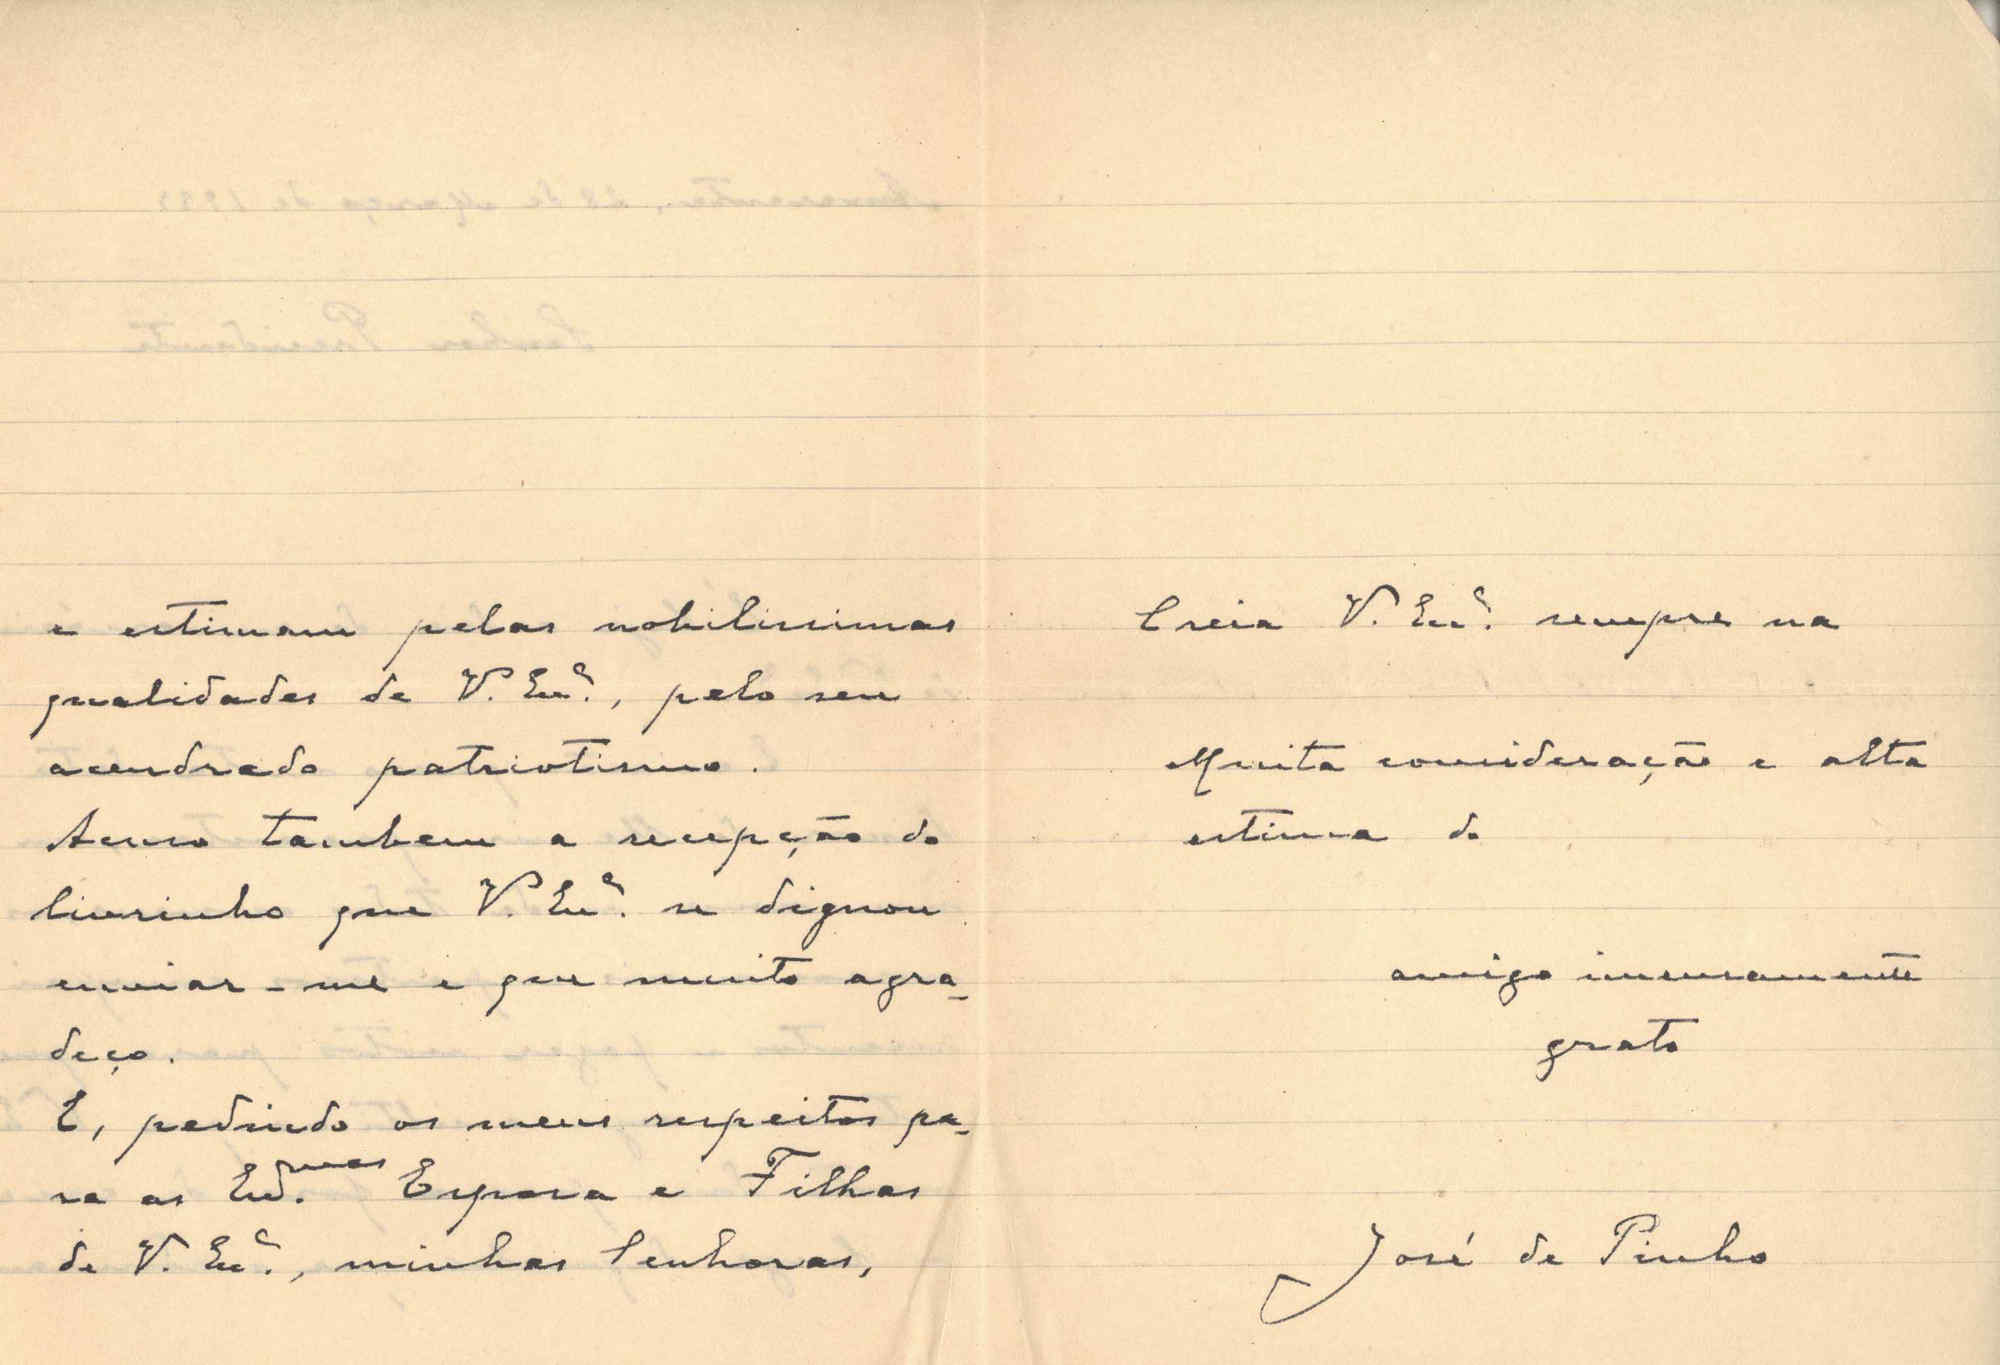 e estimam pelas nobilissimas
qualidades de V. Exª., pelo seu
acendrado patriotismo.
Acuso tambem a recepção do
livrinho que V. Exª. se dignou
enviar-me e que muito agra-
deço.
E, pedindo os meus respeitos pa-
ra as Exmas. Esposa e Filhas
de V. Exª., minhas Senhoras,
Creia V. Exª. sempre na
Muita consideração e alta
estima do
amigo imensamente
grato
José de Pinho